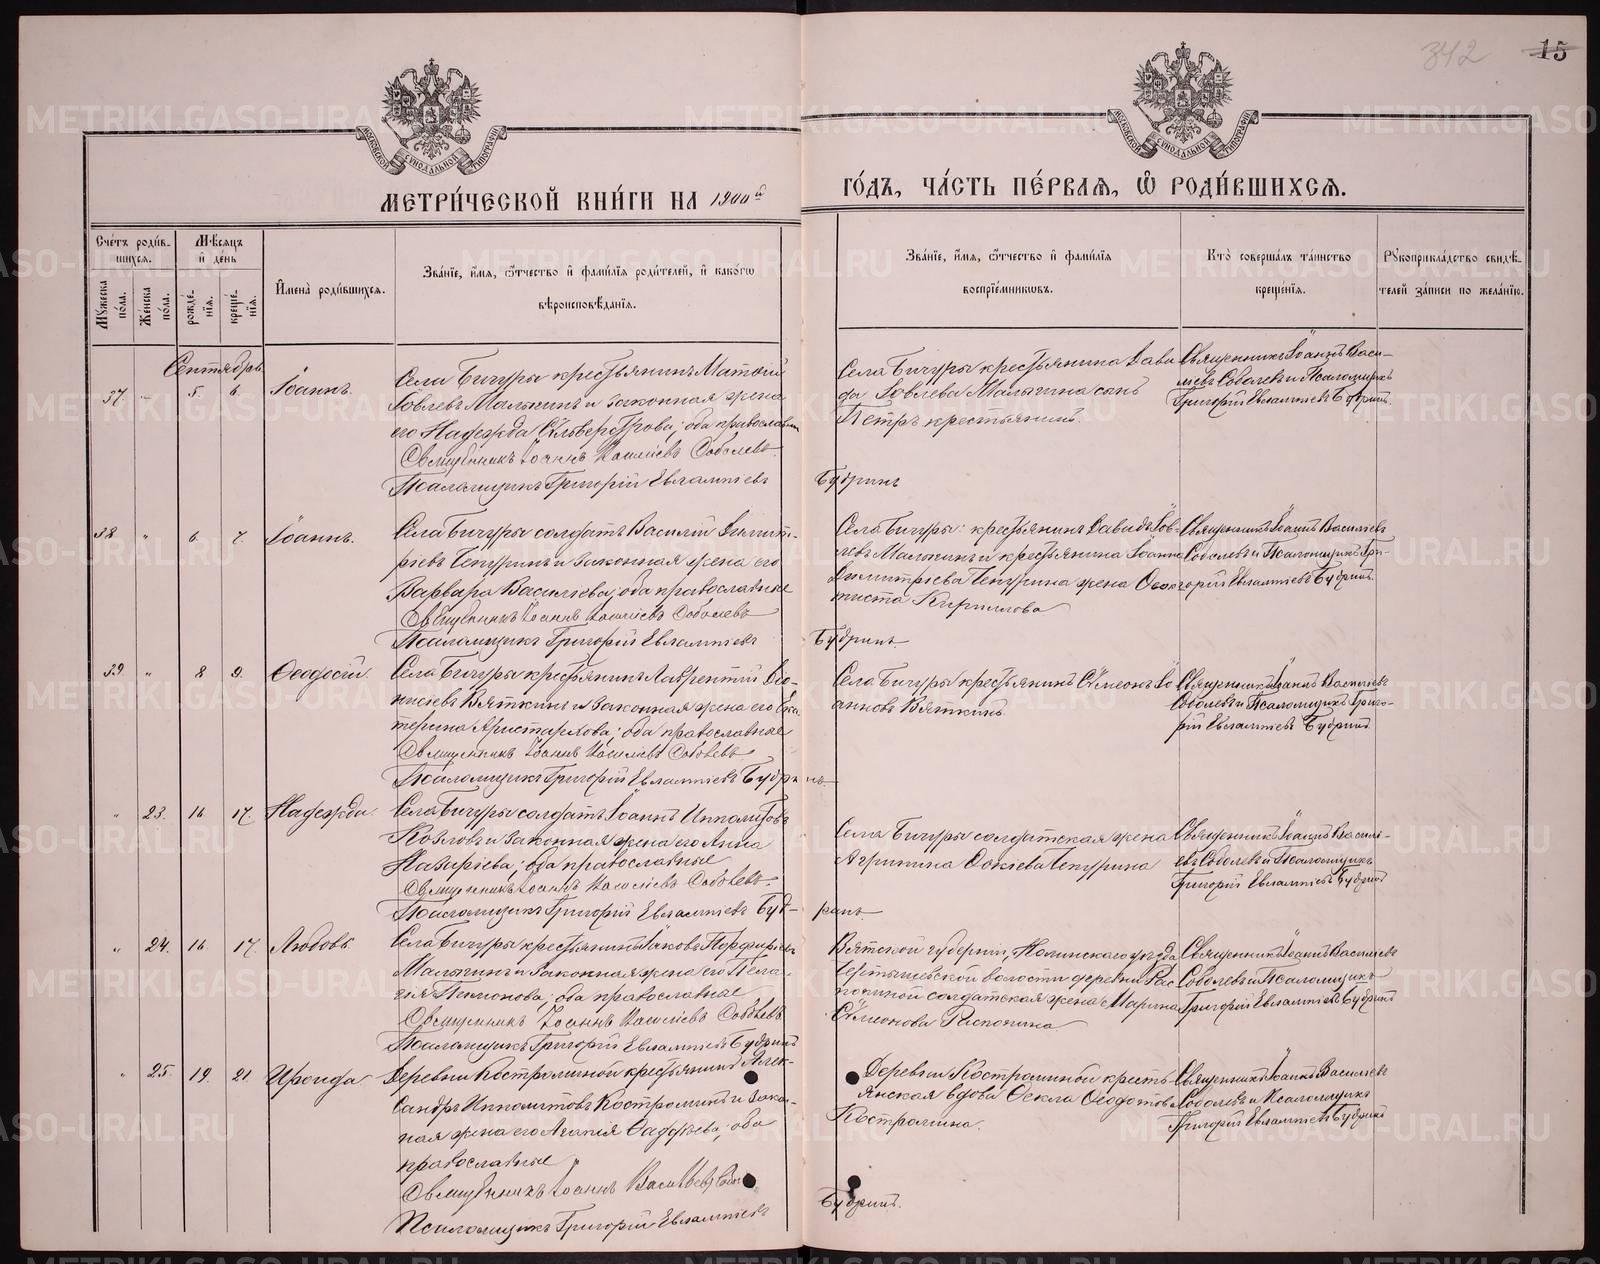 342
15
МОСКОВСКОЙ СѴНОДАЛЬНОЙ ТИПОГРАФІИ
МОСКОВСКОЙ СѴНОДАЛЬНОЙ ТИПОГРАФІИ
МЕТРИ́ЧЕСКОЙ КНИ́ГИ НА 1900й
ГО́ДЪ, ЧА́СТЬ ПЕ́РВАѦ, Ѡ҆ РОДИ́ВШИХСѦ.
Счетъ роди́вшихсѧ.
Мꙋ́жеска по́ла.
Же́нска по́ла.
Мѣ́сѧцъ и҆ де́нь
рожде́нїѧ.
креще́нїѧ.
И҆мена̀ роди́вшихсѧ.
Зва́нїе, и҆́мѧ, ѻ҆́тчество и҆ фами́лїѧ роди́телей, и҆ како́гѡ
вѣроисповѣ́данїѧ.
Зва́нїе, и҆́мѧ, ѻ҆́тчество и҆ фами́лїѧ
воспрїе́мникѡвъ.
Кто̀ соверша́лъ та́инство
креще́нїѧ.
Рꙋкоприкла́дство свидѣ́-
телей за́писи по жела́нїю.
Сентябрь
37 " 5. 6. Іоаннъ.
Села Бичуры крестьянинъ Матѳій
Іовлевъ Малыгинъ и законная жена
его Надежда Сѵльверстрова; оба православные
Священникъ Іоаннъ Васильевъ Соболевъ.
Псаломщикъ Григорій Евлампіевъ Бубринъ
Села Бичуры крестьянина Дави
да Іовлева Малыгина сынъ
Петръ крестьянинъ.
Священникъ Іоаннъ Васи-
льевъ Соболевъ и Псаломщикъ
Григорій Евлампіевъ Бубринъ.
38 " 6. 7. Іоаннъ.
Села Бичуры солдатъ Василій Димит-
ріевъ Чепуринъ и законная жена его
Варвара Васильева; оба православные
Священникъ Іоаннъ Васильевъ Соболевъ
Псаломщикъ Григорій Евлампіевъ Бубринъ
Села Бичуры: крестьянинъ Давидъ Іов-
левъ Малыгинъ и крестьянина Іоанна
Димитріева Чепурина жена Ѳеок-
тиста Кириллова
Священникъ Іоаннъ Васильевъ
Соболевъ и Псаломщикъ Гри-
горій Евлампіевъ Бубринъ.
39 " 8 9. Ѳеодосій.
Села Бичуры крестьянинъ Лаврентій Діо-
нисіевъ Вяткинъ и законная жена его Ека
терина Аристархова; оба православные
Священникъ Іоаннъ Васильевъ Соболевъ
Псаломщикъ Григорій Евлампіевъ Бубринъ
Села Бичуры крестьянинъ Сѵмеонъ Іо
анновъ Вяткинъ.
Священникъ Іоаннъ Васильевъ
Соболевъ и Псаломщикъ Григо-
рій Евлампіевъ Бубринъ
" 23. 16 17. Надежда.
Села Бичуры солдатъ Іоаннъ Ипполитовъ
Козловъ и законная жена его Анна
Назаріева; оба православные
Священникъ Іоаннъ Васильевъ Соболевъ.
Псаломщикъ Григорій Евлампіевъ Буб-ринъ
Села Бичуры солдатская жена
Агрипина Чепурина
Священникъ Іоаннъ Василь-
евъ Соболевъ и Псаломщикъ
Григорій Евлампіевъ Бубринъ
" 24. 16. 17. Любовь
Села Бичуры крестьянинъ Іаковъ Порфирьевъ
Малыгинъ и законная жена его Пела-
гія; оба православные
Священникъ Іоаннъ Васильевъ Соболевъ
Псаломщикъ Григорій Евлампіевъ Бубринъ
Вятской губерніи, Нолинскаго уѣзда
волости деревни Рас
солдатская жена Марина
Сѵмеонова
Священникъ Іоаннъ Васильевъ
Соболевъ и Псаломщикъ
Григорій Евлампіевъ Бубринъ
" 25. 19. 21. Ираида
Деревни Костроминой крестьянинъ Алек-
сандръ Ипполитовъ Костроминъ и закон-
ная жена его Агапія Ѳаддѣева; оба
православные
Священникъ Іоаннъ Васильевъ Соболевъ
Псаломщикъ Григорій Евлампіевъ Бубринъ.
Деревни Костроминой кресть
янская вдова Ѳекла Ѳеодотова
Костромина.
Священникъ Іоаннъ Васильевъ
Соболевъ и Псаломщикъ
Григорій Евлампіевъ Бубринъ
METRIKI.GASO-URAL.RU